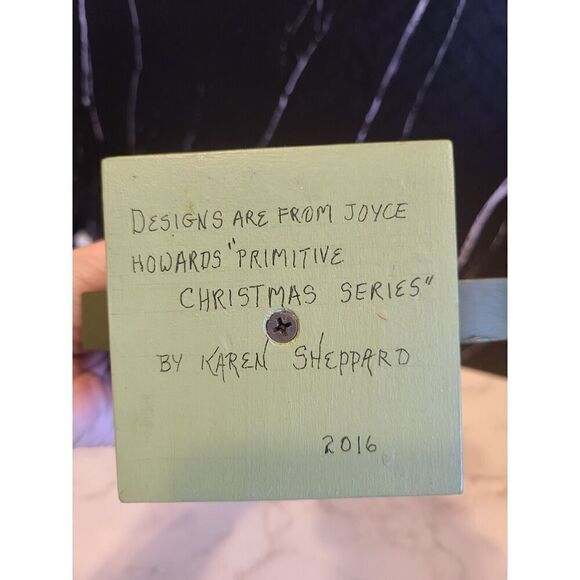 DESIGNS ARE FROM JOYCE
HOWARDS "PRIMITIVE
CHRISTMAS SERIES"
BY KAREN SHEPPARD
2016